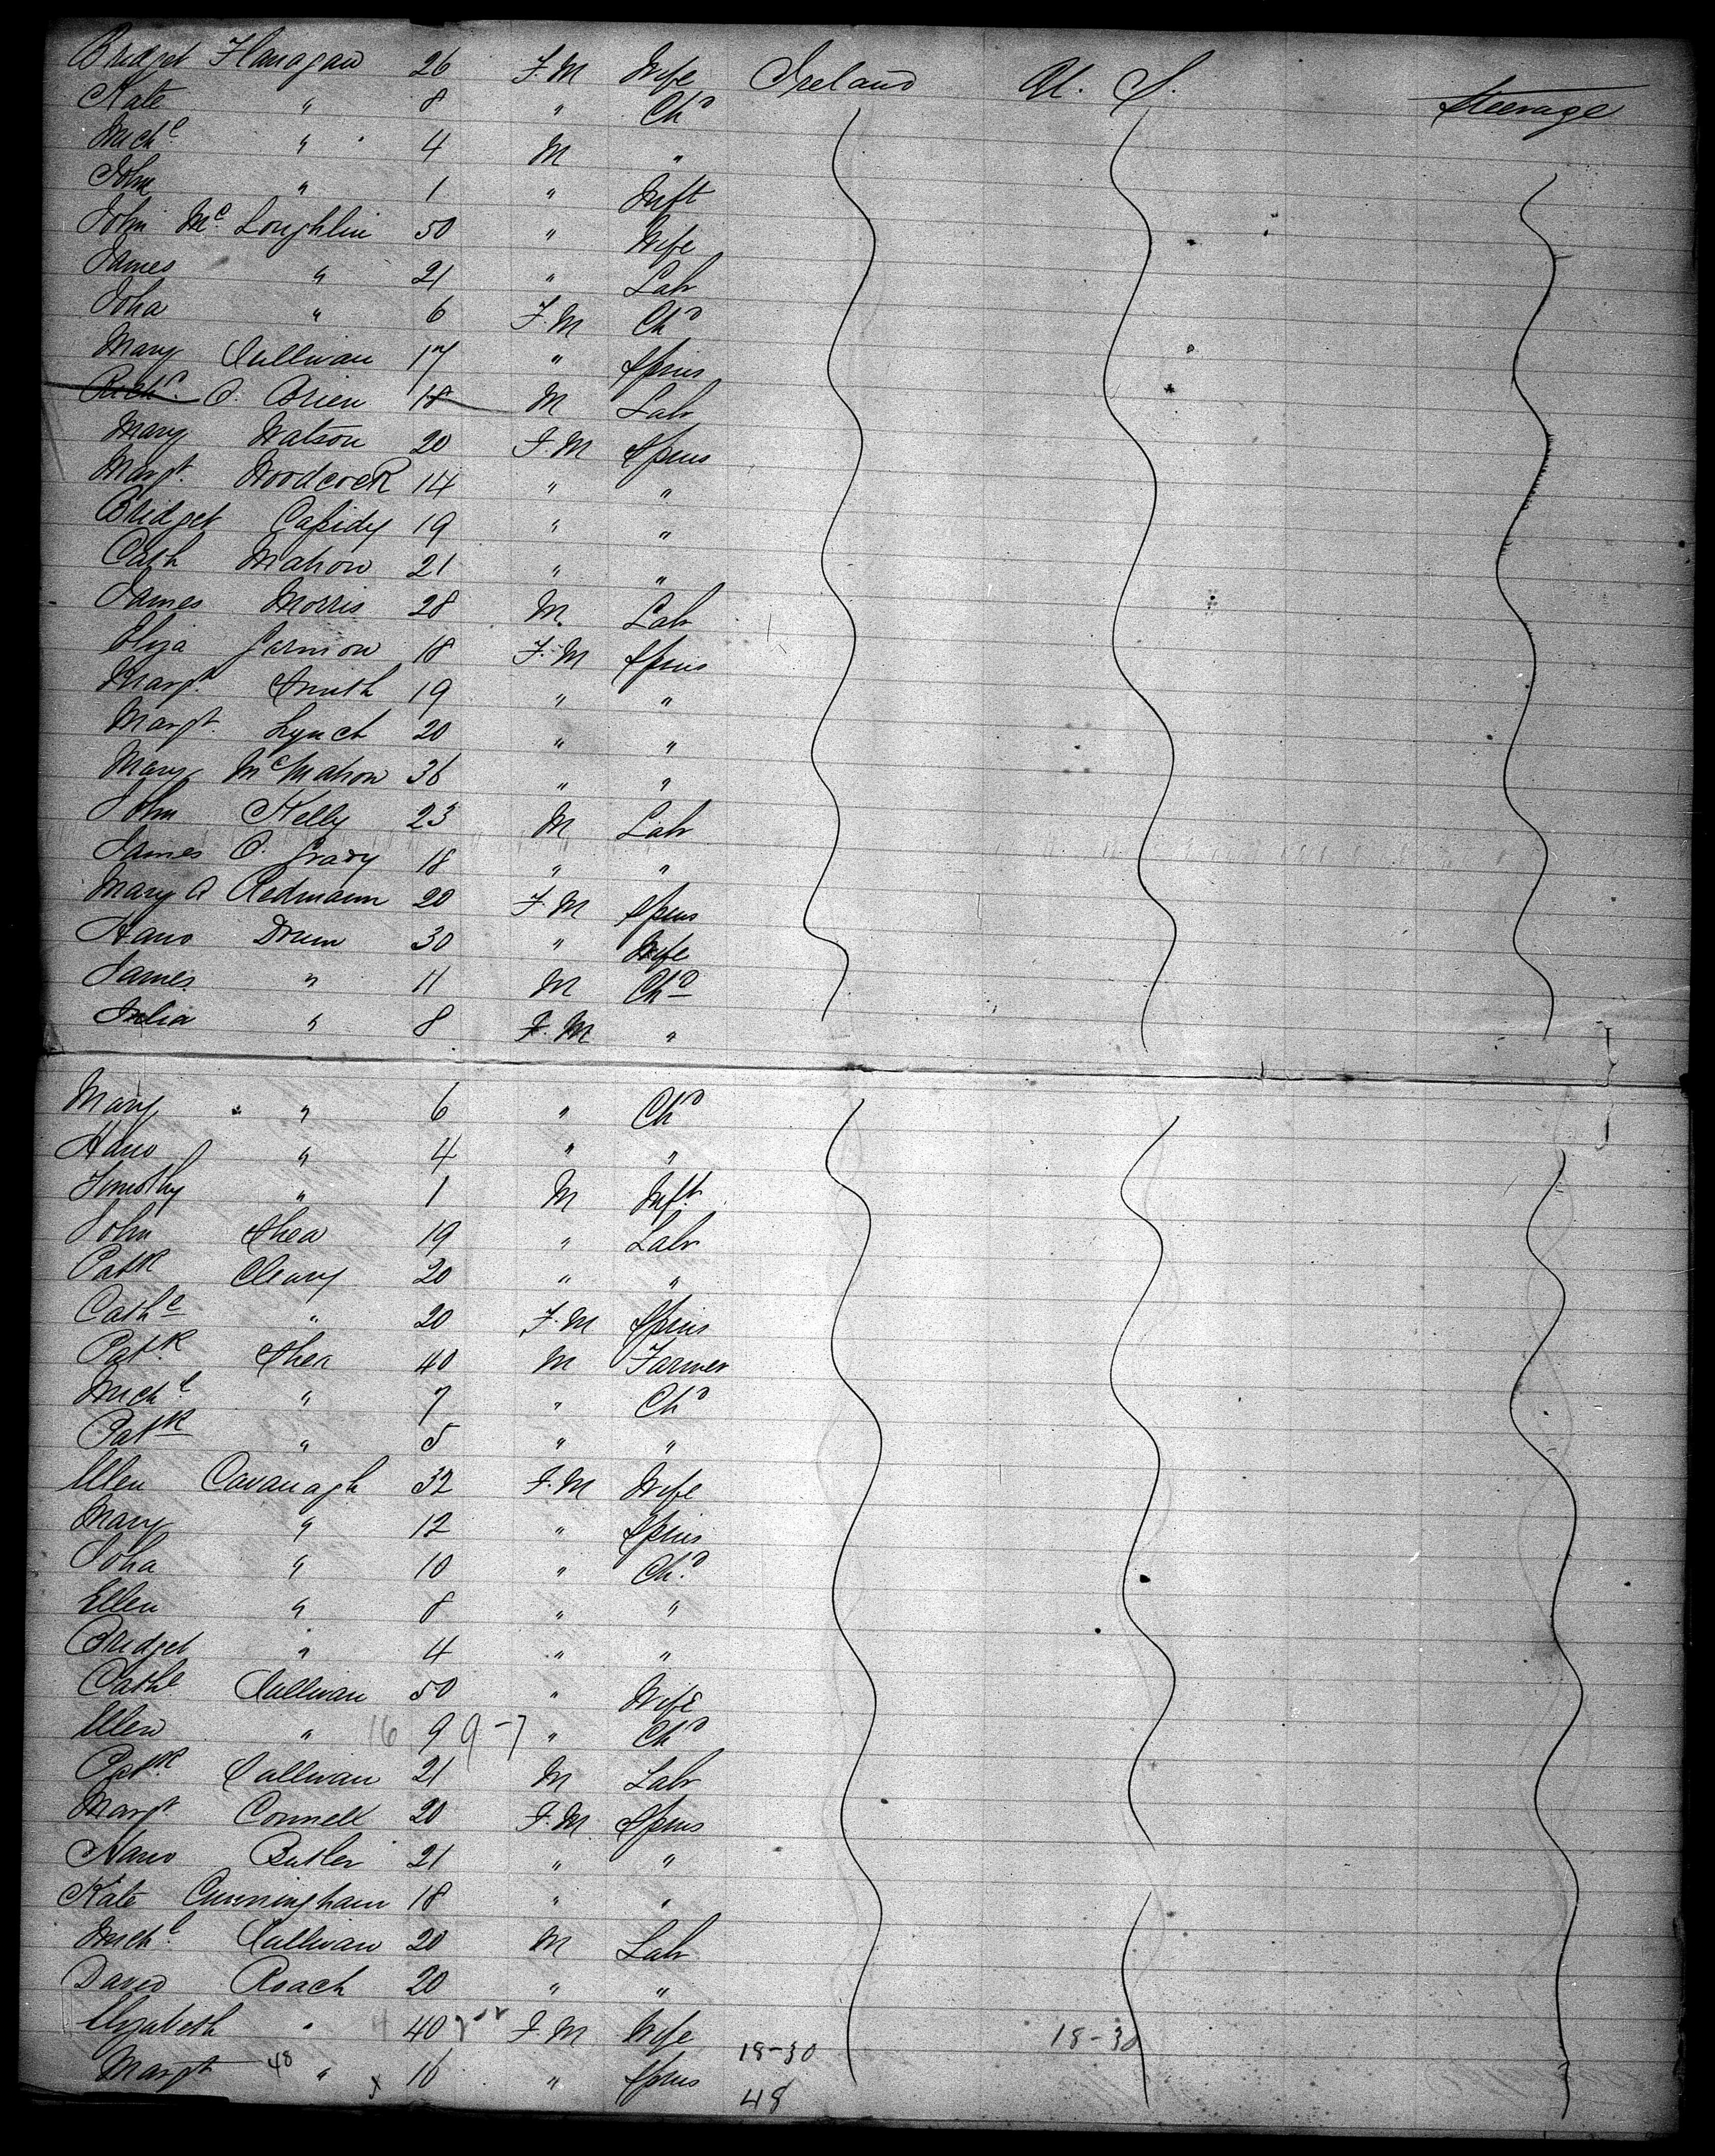 Bridget Flanagan 26 F.M Wife Ireland U. S. Steerage
Kate " 8 " Chd
Michl " 4 M "
John " 1 " Inft
John Mc Loughlin 50 " Wife
James " 21 " Labr
Joha " 6 F.M Chd
Mary Sullivan 17 " Spins
Richd O. Brien 18 M Labr
Mary Watson 20 F.M Spins
Margt Woodcock 14 " "
Bridget Cassidy 19 " "
Cath Mahon 21 " "
James Morris 28 M. Labr
Eliza Garmon 18 F.M Spins
Margt Smith 19 " "
Margt Lynch 20 " "
Mary McMahon 36 " "
John Kelly 23 M Labr
James O. Grady 18 " "
Mary A Redmann 20 F.M Spins
Hano Drum 30 " Wife
James " 11 M Chd
Julia " 8 F.M "
Mary " 6 " Chd
Hano " 4 " "
Timothy " 1 M Inft
John Shea 19 " Labr
Patk Cleary 20 " "
Cathe " 20 F.M Spins
Patk Shea 40 M Farmer
Michl " 7 " Chd
Patk " 5 " "
Ellen Cavanagh 32 F.M Wife
Mary " 12 " Spins
Joha " 10 " Chd
Ellen " 8 " "
Bridget " 4 " "
Cathe Sullivan 50 " Wife
Ellen " 16 9 9-7 " Chd
Patk Sullivan 21 M Labr
Margt Connell 20 F.M Spins
Hano Butler 21 " "
Kate Cunningham 18 " "
Michl Sullivan 20 M Labr
David Roach 20 " "
Elizabeth " 40 F.M Wife 18-30 18-30
Margt 48 " x 16 " Spins 48